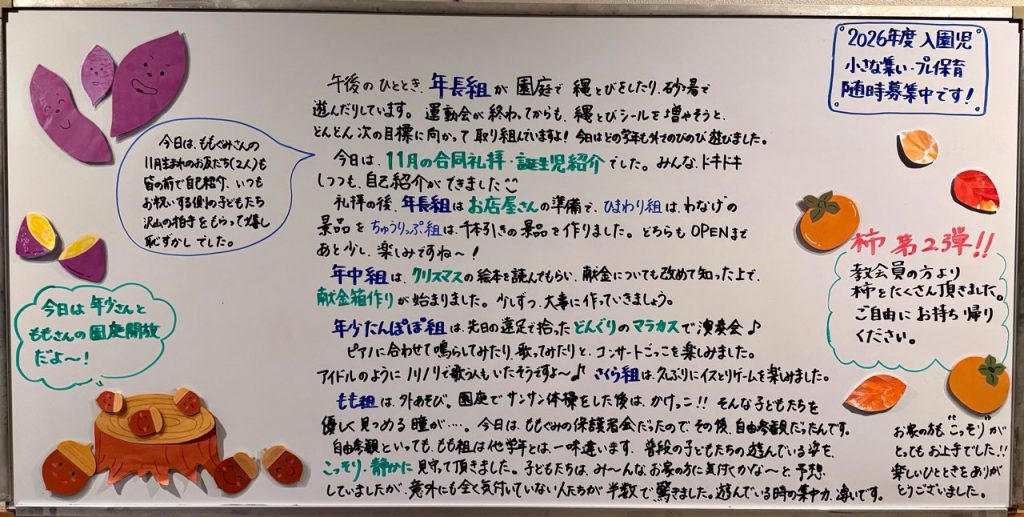 2026年度 入園児
小さな集い・プレ保育
随時募集中です!
午後のひととき、年長組が園庭で縄とびをしたり、砂場で
遊んだりしています。運動会が終わってからも、縄とびシールを増やそうと、
どんどん次の目標に向かって取り組んでいますよ!今日はどの学年も外でのびのび遊びました。
今日は、11月の合同礼拝・誕生児紹介でした。みんな、ドキドキ
しつつも、自己紹介ができました
礼拝の後、年長組はお店屋さんの準備で、ひまわり組は、わなげの
景品をちゅうりっぷ組は、千本引きの景品を作りました。どちらもOPENまで
あと少し、楽しみですね〜!
年中組は、クリスマスの絵本を読んでもらい、献金についても改めて知った上で、
献金箱作りが始まりました。少しずつ、大事に作っていきましょう。
年少たんぽぽ組は、先日の遠足で拾ったどんぐりのマラカスで演奏会♪
ピアノに合わせて鳴らしてみたり、歌ってみたりと、コンサートごっこを楽しみました。
アイドルのようにノリノリで歌う人もいたそうですよ〜♪ さくら組は、久しぶりにイスとりゲームを楽しみました。
もも組は、外あそび。園庭でサンサン体操をした後は、かけっこ!!そんな子どもたちを
優しく見つめる瞳が…。今日は、ももぐみの保護者会だったので、その後、自由参観だったんです。
自由参観といっても、もも組は他学年とは一味違います。普段の子どもたちの遊んでいる姿を、
こっそり・静かに見守って頂きました。子どもたちは、み〜んなお家の方に気付くかな〜と、予想
していましたが、意外にも全く気付いていない人たちが半数で驚きました。遊んでいる時の集中力、凄いです。
今日は、ももぐみさんの
11月生まれのお友だち(2人)も
皆の前で自己紹介、いつも
お祝いする側の子どもたち
沢山の拍手をもらって嬉し
恥ずかしでした。
今日は年少さんと
ももさんの園庭開放
だよ〜!
柿第2弾!!
教会員の方より
柿をたくさん頂きました。
ご自由にお持ち帰り
ください。
お家の方も"こっそり"が
とってもお上手でした!!
楽しいひとときをありが
とうございました。